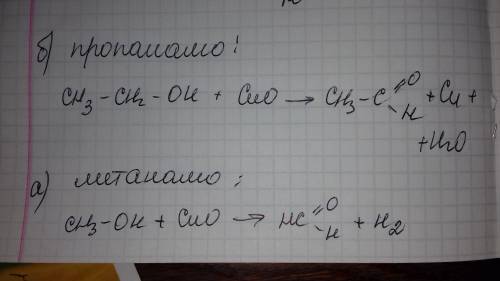 б) пропаналю:
CH₃-CH₂-OH + CuO → CH₃-C=O-H + Cu +
+H₂O
а) метаналю:
CH₃-OH + CuO → HC=O-H + H₂